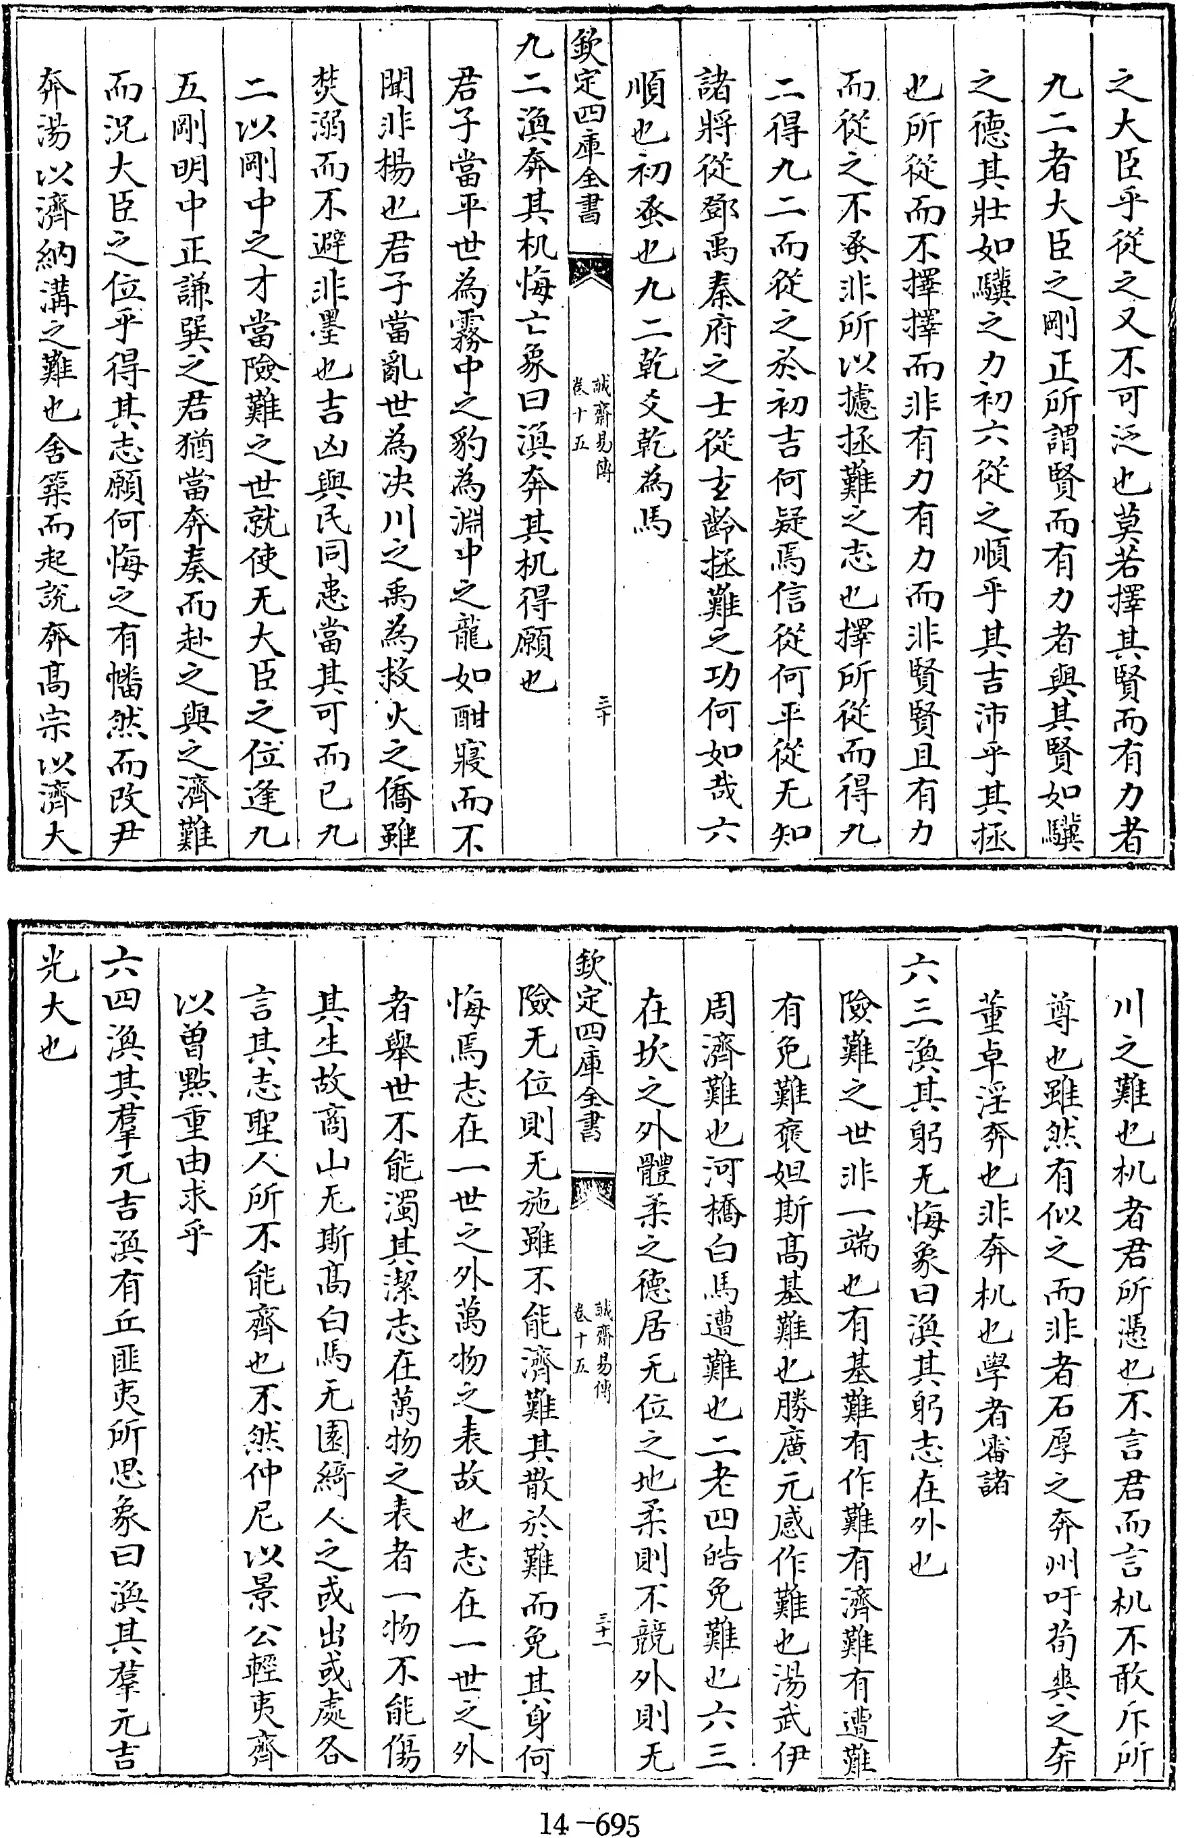 之大臣乎從之又不可泛也莫若擇其賢而有力者
九二者大臣之剛正所謂賢而有力者與其賢如驥
之德其壯如驥之力初六從之順乎其吉沛乎其拯
也所從而不擇擇而非有力有力而非賢賢且有力
而從之不蚤非所以攄拯難之志也擇所從而得九
二得九二而從之於初吉何疑焉信從何平從无知
諸將從鄧禹秦府之士從玄齡拯難之功何如哉六
順也初蚤也九二乾爻乾為馬
欽定四庫全書
誠齋易傳
卷十五
三十
九二渙奔其机悔亡象曰渙奔其机得願也
君子當平世為霧中之豹為淵中之龍如酣寢而不
聞非楊也君子當亂世為决川之禹為救火之僑雖
焚溺而不避非墨也吉凶與民同患當其可而已九
二以剛中之才當險難之世就使无大臣之位逢九
五剛明中正謙巽之君猶當奔奏而赴之與之濟難
而况大臣之位乎得其志願何悔之有幡然而改尹
奔湯以濟納溝之難也舍築而起說奔髙宗以濟大
川之難也机者君所憑也不言君而言机不敢斥所
尊也雖然有似之而非者石厚之奔州吁荀爽之奔
董卓淫奔也非奔机也學者審諸
六三渙其躬无悔象曰渙其躬志在外也
險難之世非一端也有基難有作難有濟難有遭難
有免難褒妲斯髙基難也勝廣元感作難也湯武伊
周濟難也河橋白馬遭難也二老四皓免難也六三
在坎之外體柔之德居无位之地柔則不競外則无
欽定四庫全書
誠齋易傳
卷十五
三十一
險无位則无施雖不能濟難其散於難而免其身何
悔焉志在一世之外萬物之表故也志在一世之外
者舉世不能濁其潔志在萬物之表者一物不能傷
其生故商山无斯髙白馬无園綺人之或出或處各
言其志聖人所不能齊也不然仲尼以景公輕夷齊
以曾點重由求乎
六四渙其羣元吉渙有丘匪夷所思象曰渙其羣元吉
光大也
14-695